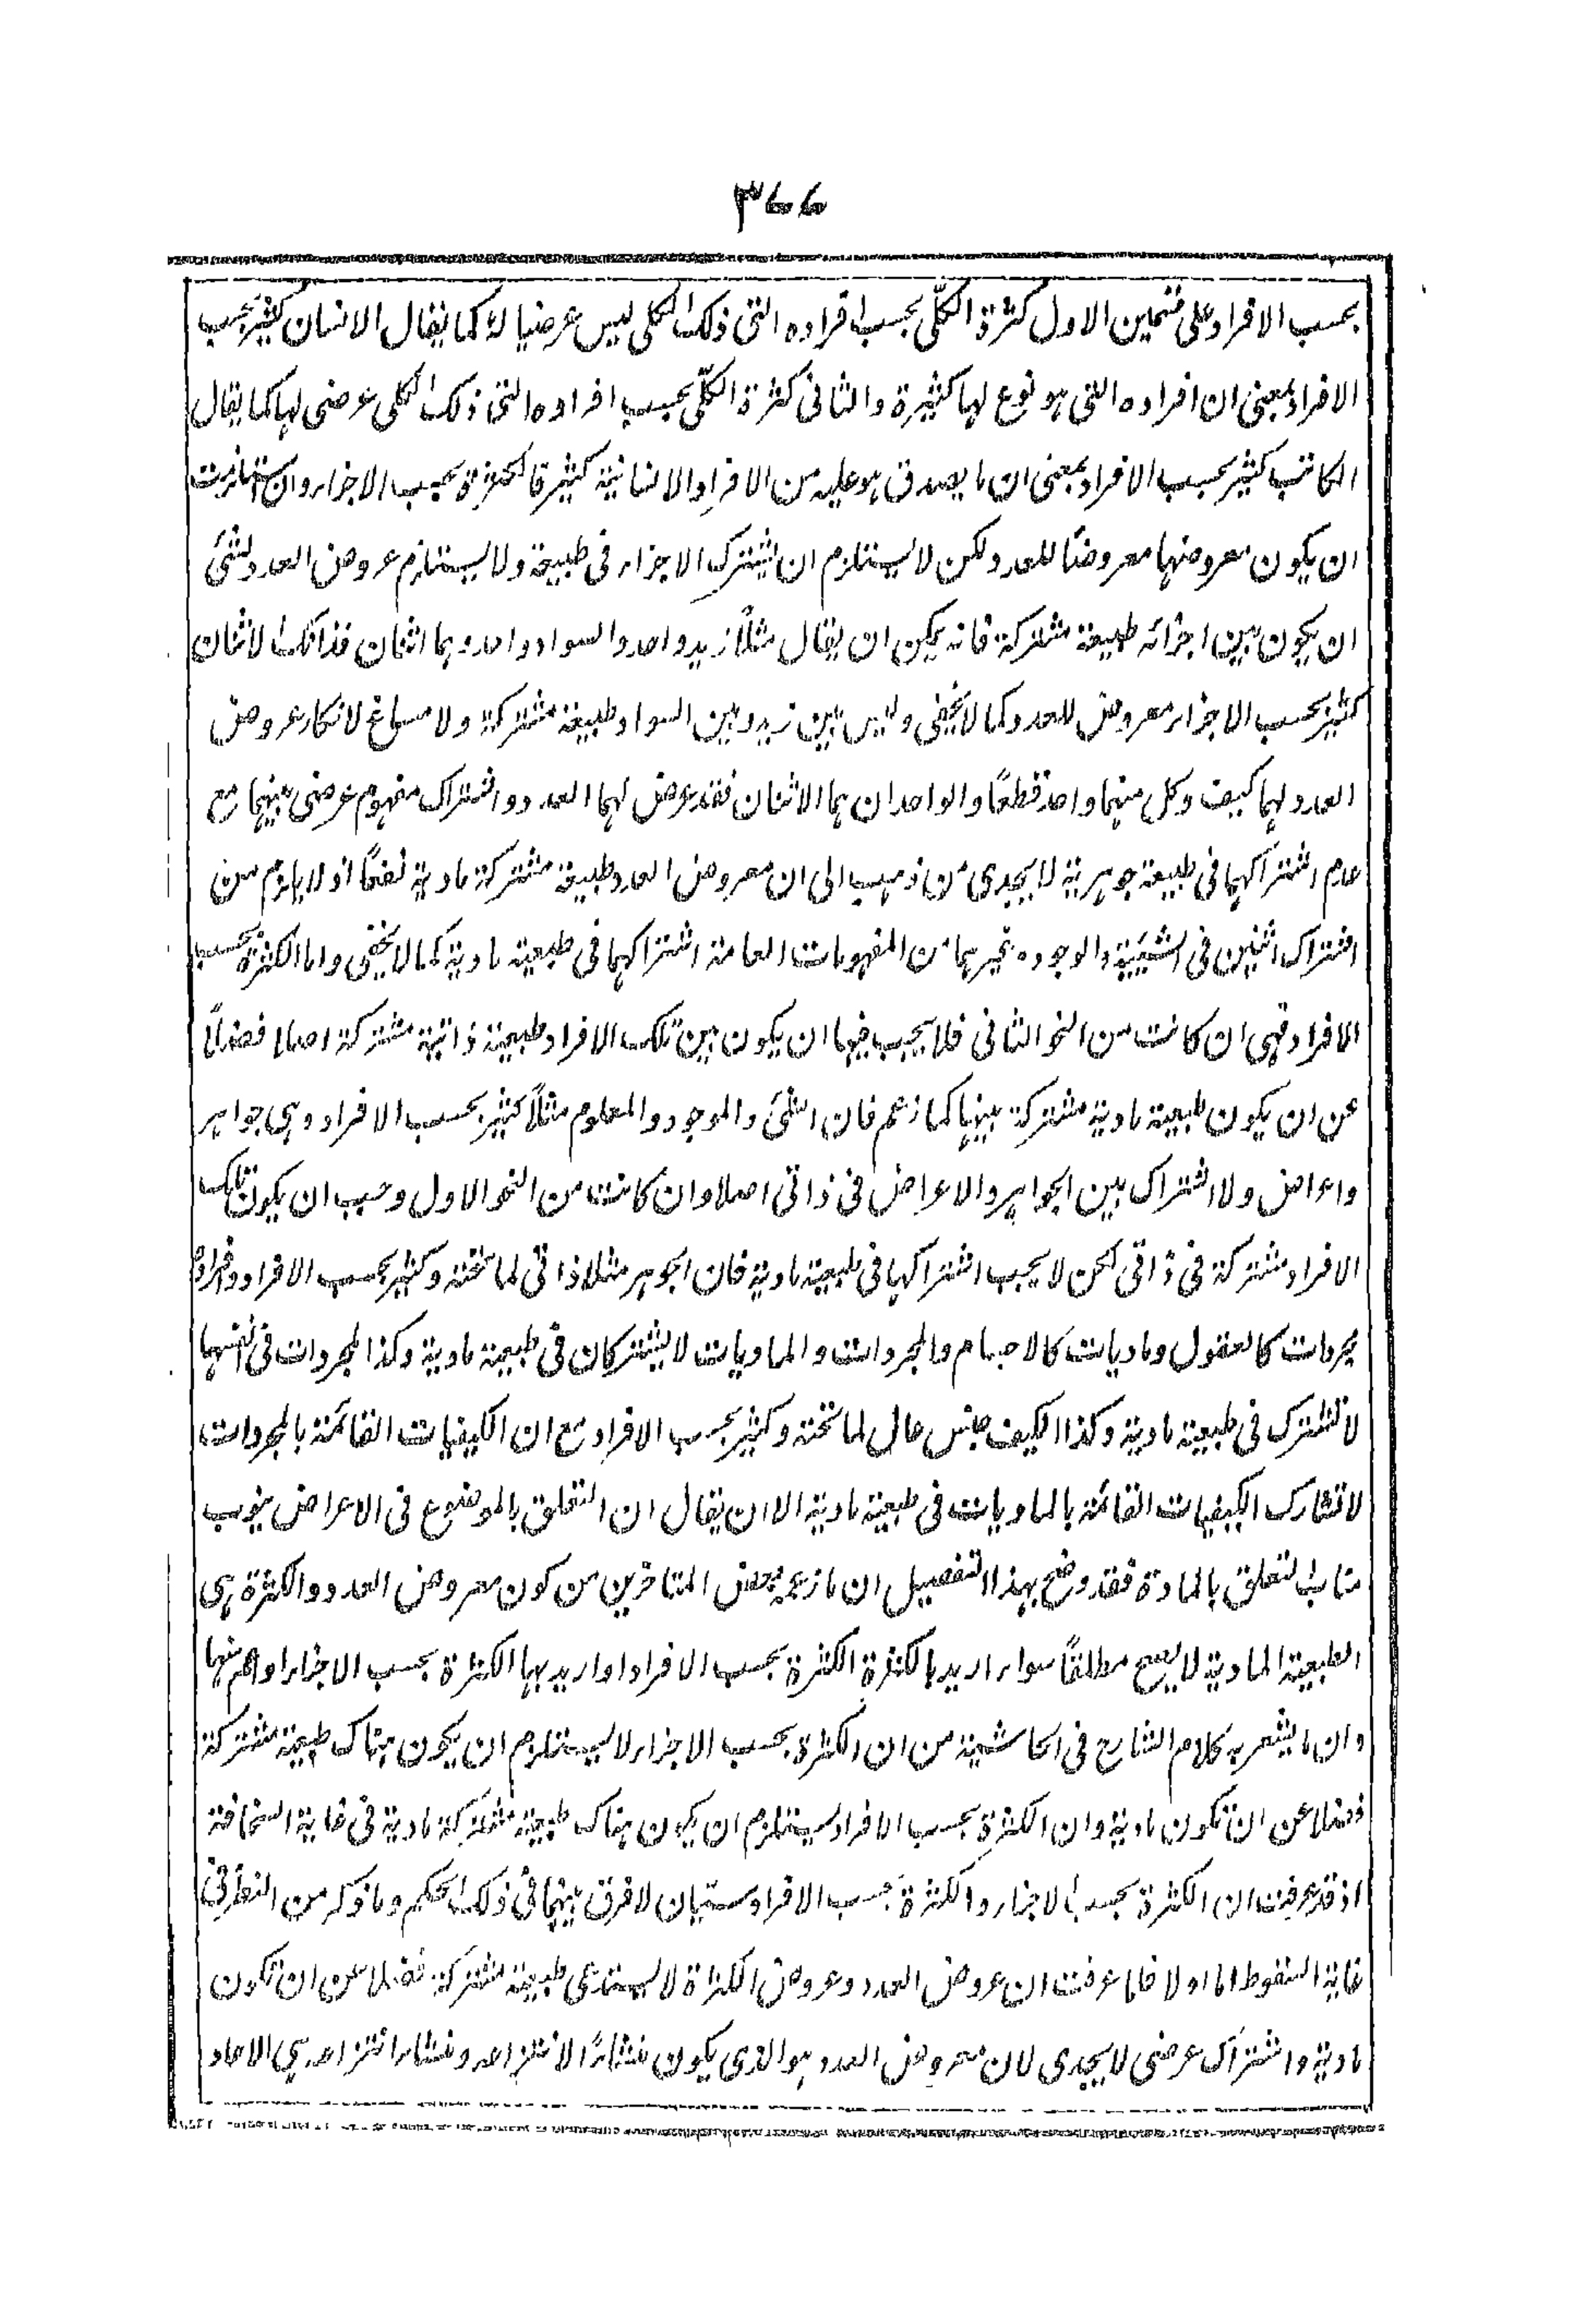 ٣٤٤
بحسب الافراد على قسمين الاول كثرة الكلّي بحسب افراده التي ذلك الكلي ليس عرضيا لها كما يقال الانسان كثير بحسب
الافراد بمعنى ان افراده التي هو نوع لها كثيرة والثاني كثرة الكلّي بحسب افراده التي ذلك الكلي عرضي لها كما يقال
الكاتب كثير بحسب الافراد بمعنى ان ما يصدق هو عليه من الافراد الانسانية كثير فالكثرة بحسب الاجزاء وان استلزمت
ان يكون معروضها معروضًا للعدد لكن لا يستلزم ان يشترك الاجزاء في طبيعة ولا يستلزم عروض العدد لشئ
ان يكون بين اجزائه طبيعة مشتركة فانه يمكن ان يقال مثلًا زيد واحد والسواد واحد وهما اثنان فذانك الاثنان
كثير بحسب الاجزاء معروض للعدد كما لا يخفى وليس بين زيد وبين السواد طبيعة مشتركة ولا مساغ لانكار عروض
العدد لهما كيف وكل منهما واحد قطعًا والواحدان هما الاثنان فقد عرض لهما العدد واشتراك مفهوم عرضي بينهما مع
عدم اشتراكهما في طبيعة جوهرية لا يجدي من ذهب الى ان معروض العدد طبيعة مشتركة مادية نفعًا اذ لا يلزم من
اشتراك اثنين في الشيئية والوجود وغيرهما من المفهومات العامة اشتراكهما في طبيعة مادية كما لا يخفى واما الكثرة بحسب
الافراد فهي ان كانت من النحو الثاني فلا يجب فيها ان يكون بين تلك الافراد طبيعة ذاتية مشتركة اصلا فضلًا
عن ان يكون طبيعة مادية مشتركة بينها كما زعم فان الشئ والموجود والمعلوم مثلًا كثير بحسب الافراد وهي جواهر
واعراض ولا اشتراك بين الجواهر والاعراض في ذاتي اصلا وان كانت من النحو الاول وجب ان يكون تلك
الافراد مشتركة في ذاتي لكن لا يجب اشتراكها في طبيعة مادية فان الجوهر مثلا ذاتي لما تحته وكثير بحسب الافراد وافراده
مجردات كالعقول وماديات كالاجسام والمجردات والماديات لا يشتركان في طبيعة مادية وكذا المجردات في انفسها
لا تشترك في طبيعة مادية وكذا الكيف جنس عال لما تحته وكثير بحسب الافراد مع ان الكيفيات القائمة بالمجردات
لا تشارك الكيفيات القائمة بالماديات في طبيعة مادية الا ان يقال ان التعلق بالموضوع في الاعراض ينوب
مناب التعلق بالمادة فقد وضح بهذا التفصيل ان ما زعمه بعض المتاخرين من كون معروض العدد والكثرة هي
الطبيعة المادية لا يصح مطلقًا سواء اريد بالكثرة الكثرة بحسب الافراد او اريد بها الكثرة بحسب الاجزاء او اعم منها
وان ما يشعر به كلام الشارح في الحاشية من ان الكثرة بحسب الاجزاء لا يستلزم ان يكون هناك طبيعة مشتركة
فضلا عن ان تكون مادية وان الكثرة بحسب الافراد يستلزم ان يكون هناك طبيعة مشتركة مادية في غاية السخافة
اذ قد عرفت ان الكثرة بحسب الاجزاء والكثرة بحسب الافراد سيّان لا فرق بينهما في ذلك الحكم وما ذكر من التفرقة في
غاية السقوط اما اولا فلما عرفت ان عروض العدد وعروض الكثرة لا يستدعي طبيعة مشتركة فضلا عن ان تكون
مادية واشتراك عرضي لا يجدي لان معروض العدد هو الذي يكون منشاءً لانتزاعه ومنشاء انتزاعه هي الاحاد